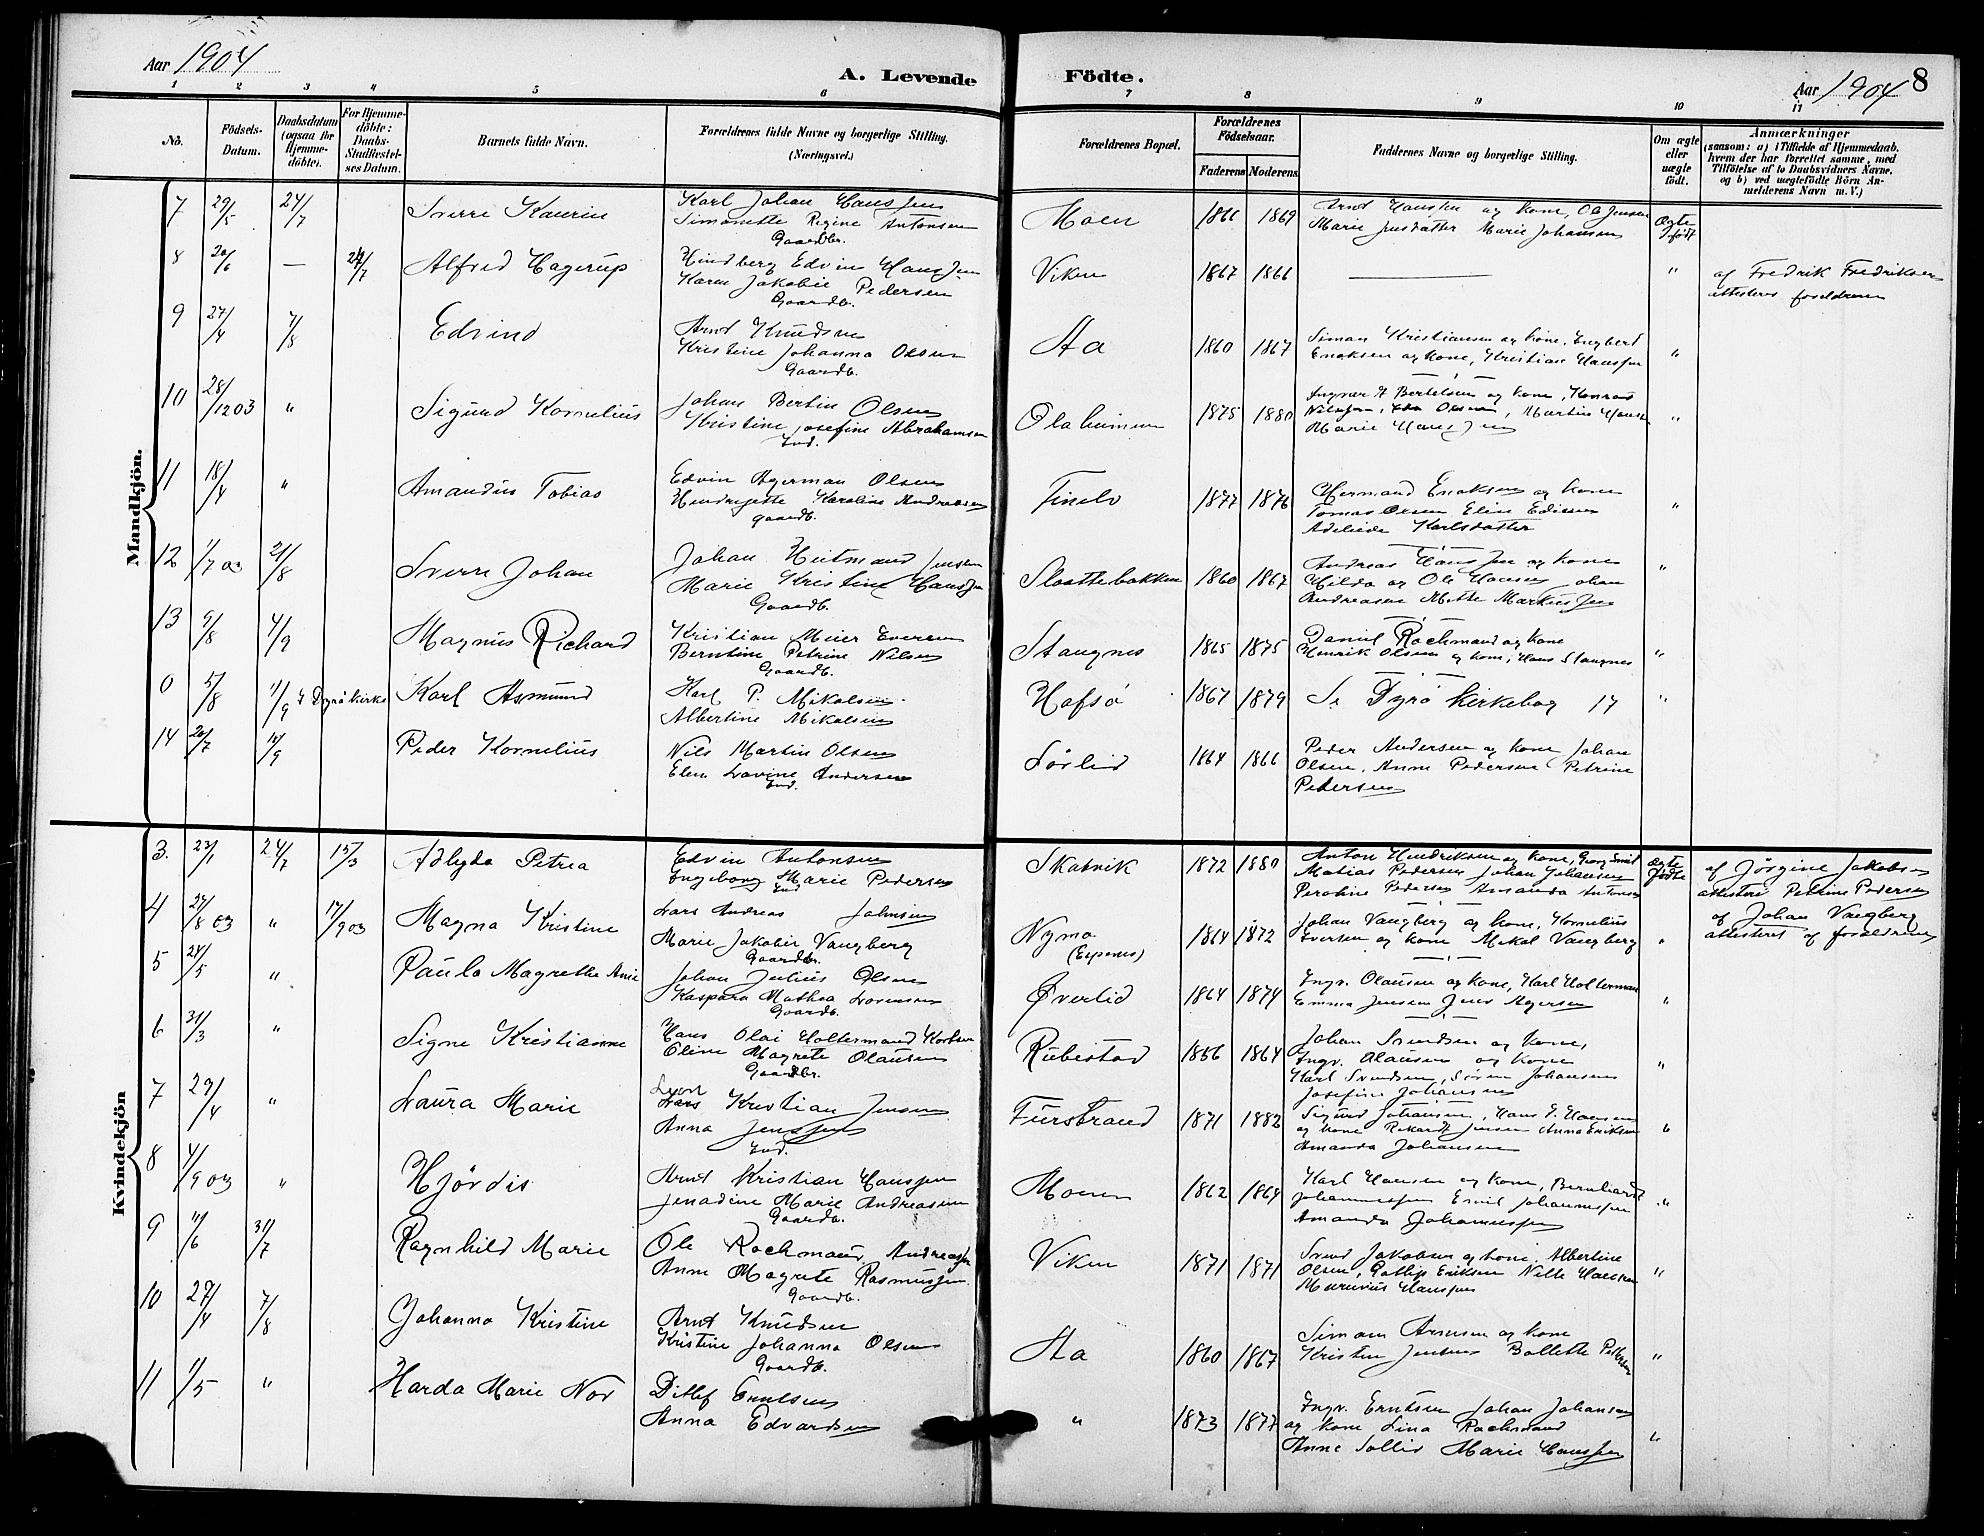 Aar 1904
A. Levende Födte.
Aar 1904 8
1 2 3 4 5 6 7 8 9 10 11
No.
Födsels-Datum.
Daabsdatum (ogsaa for Hjemme-döbte).
For Hjemme-döbte: Daabs-Stadfæstel-ses Datum.
Barnets fulde Navn.
Forældrenes fulde Navne og borgerlige Stilling. (Næringsvei.)
Forældrenes Bopæl.
Forældrenes Födselsaar.
Faderens Moderens
Faddernes Navne og borgerlige Stilling.
Om ægte eller uægte födt.
Anmærkninger
(saasom: a) i Tilfælde af Hjemmedaab, hvem der har forrettet samme, med Tilföielse af to Daabsvidners Navne, og b) ved uægtefödte Börn Anmelderens Navn m. V.)
Mandkjön.
7 29/5 24/7 Sverre Kaurin Karl Johan Hanssen
Simonette Regine Antonsen
Gaardbr. Moen 1866 1869 Arnt Hanssen og kone, Ole Jensen
Marie Jensdatter Marie Johansen Ægte födt
8 20/6 — 24/7 Alfred Hagerup Hindberg Edvin Hanssen
Karen Jakobie Pedersen
Gaardb. Viken 1867 1866 — " af Fredrik Fredriksen
attesteres foreldrene
9 27/4 7/8 Edvind Arnt Knudsen
Kristine Johanna Olsen
Gaardb. Aa 1860 1867 Simon Kristiansen og kone, Engberd
Enoksen og kone, Kristian Hanssen "
10 28/12 03 " Sigurd Kornelius Johan Bertin Olsen
Kristine Josefine Abrahamsen
Ind. Olaheimen 1875 1880 Ingvar H Bertelsen og kone, Konrad
Nilssen, Olsen, Martin Hansen
Marie Hanssen "
11 18/4 " Amandus Tobias Edvin Agerman Olsen
Hendrejette Karoline Andreassen
gaardb. Finelv 1877 1876 Hermand Enoksen og kone
Tomas Olsen Eline
Adeleide Karlsdatter "
12 1/7 03 21/8 Sverre Johan Johan Hietmand Jensen
Marie Kristine Hanssen
Gaardb. Slaattebakken 1860 1867 Andreas Hanssen og kone
Hilda og Ole Hansen Johan
Andreasen Mette Markussen "
13 9/8 4/9 Magnus Richard Kristian Meier Eversen
Berntine Petrine Nilsen
Gaardb. Stangnes 1865 1875 Daniel Rochmand og kone
Henrik Olsen og kone, Hans Stangnes "
0 5/8 11/9 i Dyrö kirke Karl Asmund Karl P. Mikalsen
Albertine Mikalsen Hofsö 1867 1879 Se Dyrö Kirkebog 17 "
14 20/7 18/9 Peder Kornelius Nils Martin Olsen
Elen Lovine Andersen
Ind. Lörlid 1864 1866 Peder Andersen og kone Johan
Olsen, Anne Pedersen Petrine
Pedersen
Kvindekjön
3. 23/1 24/7 15/3 Adlyda Petrea Edvin Antonsen
Ingeborg Marie Pedersen
Ind Skatvik 1872 1880 Anton Hendriksen og kone, Georg Smid
Matias Pedersen Johan Johansen
Peroline Pedersen Amanda Antonsen Ægte födte af Jörgine Jakobsen
attesteres Petrine Pedersen
4 27/8 03 " 17/9 03 Magna Kristine Lars Andreas Johnsen
Marie Jakobie Vangberg
Gaardbr. Nymo
(Espenes) 1864 1872 Johan Vangberg og kone, Kornelius
Eversen og kone Mikal Vangberg " af Johan Vangberg
attesteret af foreldrene
5 24/5 " Paula Magrethe Anie Johan Julius Olsen
Kaspara Mathea Lorensen
Gaardb. Överlid 1864 1874 Ingv. Olausen og kone, Karl Holterman
Emma Jensen Jens Agersen "
6 31/3 " Signe Kristianne Hans Olai Holtermand
Oline Magrete Olausen
Gaardbr. Rubestad 1856 1864 Johan Svendsen og kone,
Ingv. Olausen og kone
Karl Svendsen, Sören Johansen
Josefine Johansen "
7 29/4 " Laura Marie Lyort
Lars Kristian Jensen
Anna Jenssen
Ind. Furstrand 1871 1882 Sigurd Johansen, Hans J. Hansen
og kone Rikardt Jensen Anna Eriksen
Amanda Johansen "
8 4/9 03 " Hjördis Arnt Kristian Hanssen
Jenadine Marie Andreasen
Gaardb. Moen 1862 1864 Karl Hansen og kone, Bernhardt
Johannessen Emil Johannessen
Amanda Johannessen "
9 11/6 31/7 Ragnhild Marie Ole Rochmand Andreassen
Anne Magrete Rasmussen
Gaardb. Viken 1871 1871 Svend Jakobsen og kone, Albertine
Olsen, Gotlip Eriksen Nille Hanssen
Marenus Hanssen "
10 27/4 7/8 Johanna Kristine Arnt Knudsen
Kristine Johanna Olsen
Gaardb. Aa 1860 1867 Simon Arnesen og kone
Kristen Jensen Bollette Pedersen "
11 11/5 " Harda Marie Nor Ditlef Erntsen
Anna Edvardsen " 1873 1877 Ingv. Erntsen Johan Johansen
og kone Lina Rochmand
Anne Sollid Marie Hanssen "